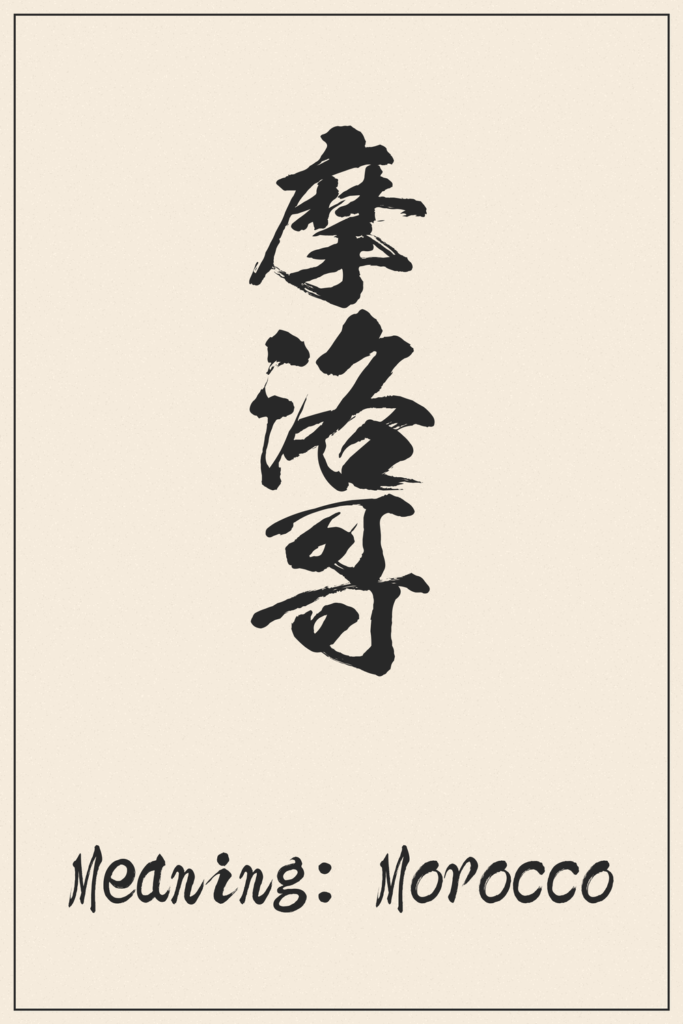 摩洛哥
Meaning: Morocco